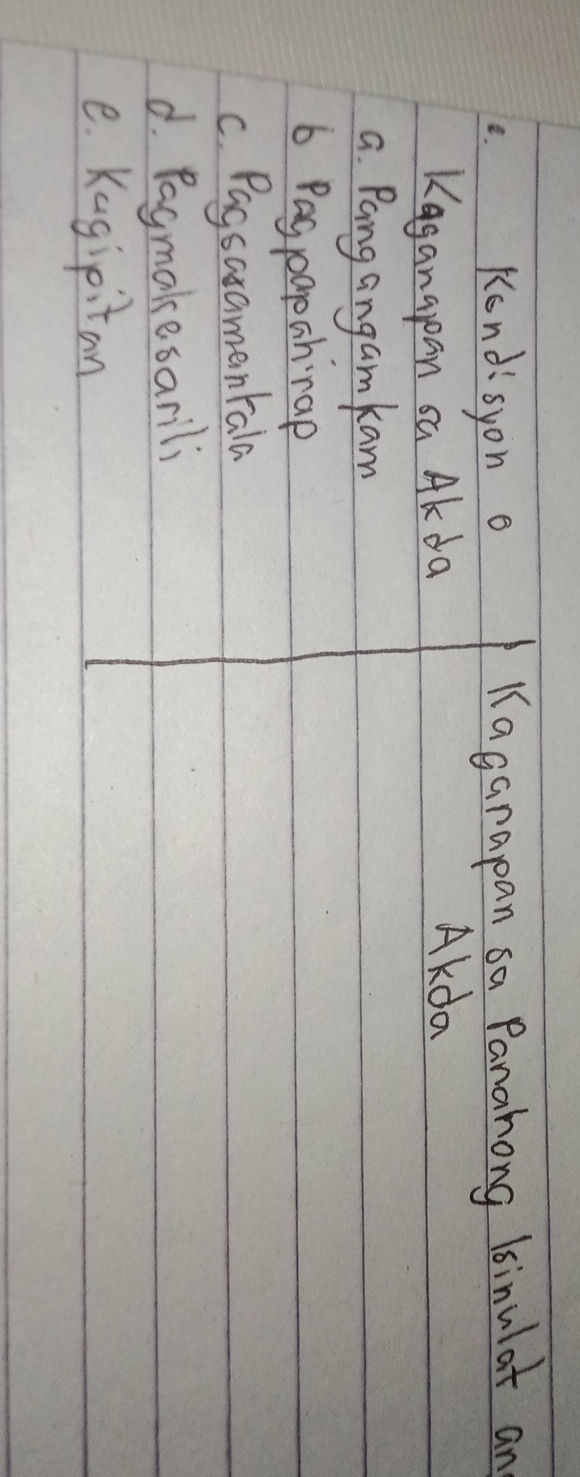 Kondisyon o
Kaganapan sa Akda
Kaganapan sa Panahong Isinulat an
Akda
a. Pangangamkam
b Pagpapahirap
c. Pagsasamantala
d. Pagmakasarili
e. Kagipitan